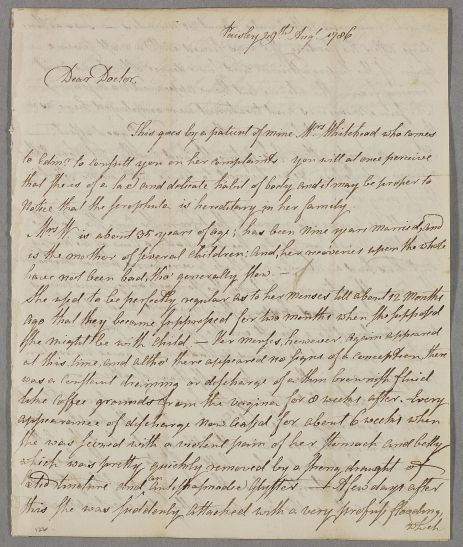 Paisley 29th Augt 1786
Dear Doctor,
This goes by a patient of mine Mrs Whitehead who comes
to Edinr to consult you on her complaints you will at once perceive
that she is of a lax and delicate habit of body and it may be proper to
notice that the scrophula is hereditary in her family
Mrs W is about 35 years of age; has been nine years married, and
is the mother of several children; and, her recoveries upon the whole
have not been bad, tho' generally slow —
She used to be perfectly regular as to her menses till about 12 months
ago that they became suppressed for two months when she supposed
she might be with child — Her menses, however again appeared
at this time, and altho' there appeared no signs of a conception, there
was a constant draining or discharge of a thin brownish fluid
like coffee grounds from the vagina for 8 weeks after. Every
appearance of discharge now ceased for about 6 weeks when
she was seized with a violent pain of her stomach and belly
which was pretty quickly removed by a strong draught of
and an antispasmodic glyster — A few days after
this she was suddenly attacked with a very profuse flooding,
which